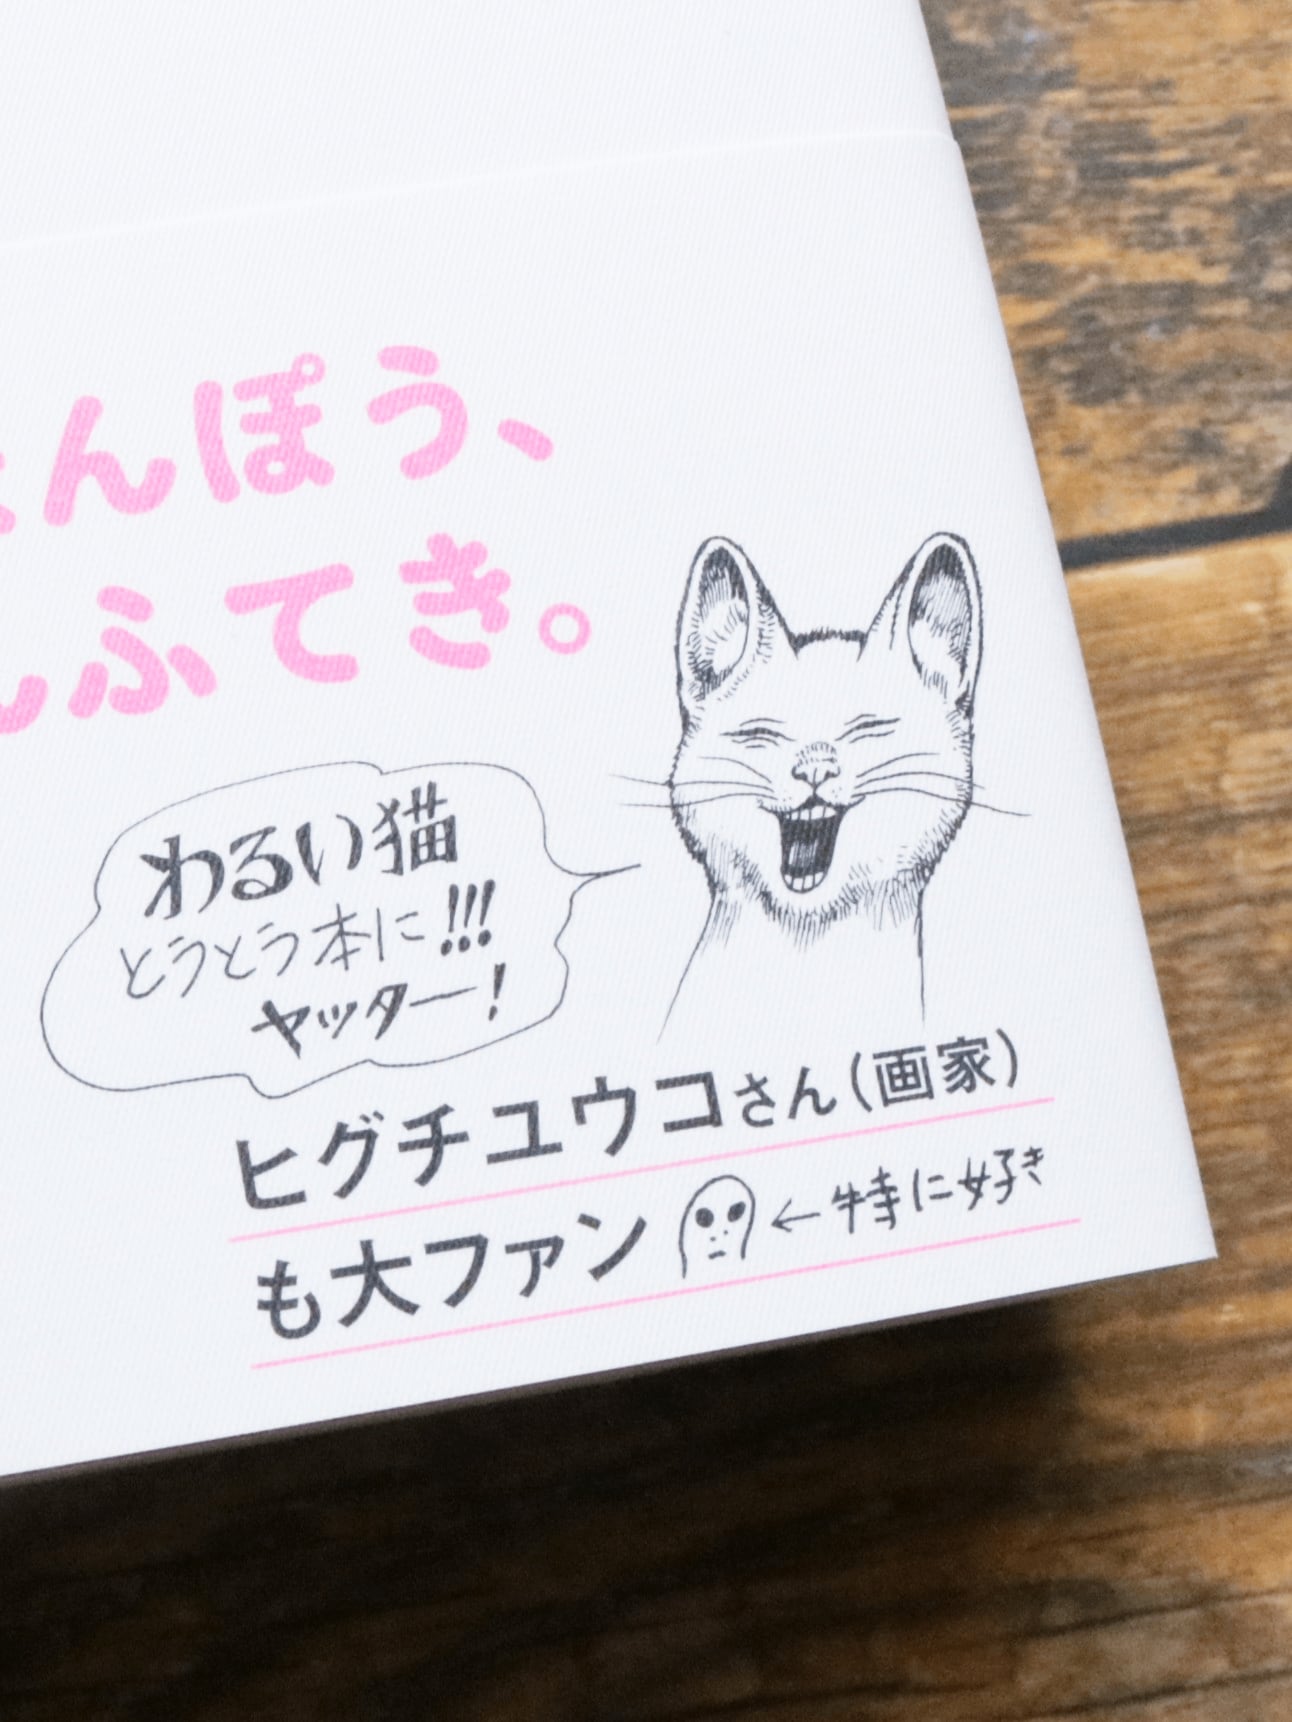 んぽう、
ふてき。
わるい猫
とうとう本に!!!
ヤッター!
ヒグチユウコさん(画家)
も大ファン ←特に好き